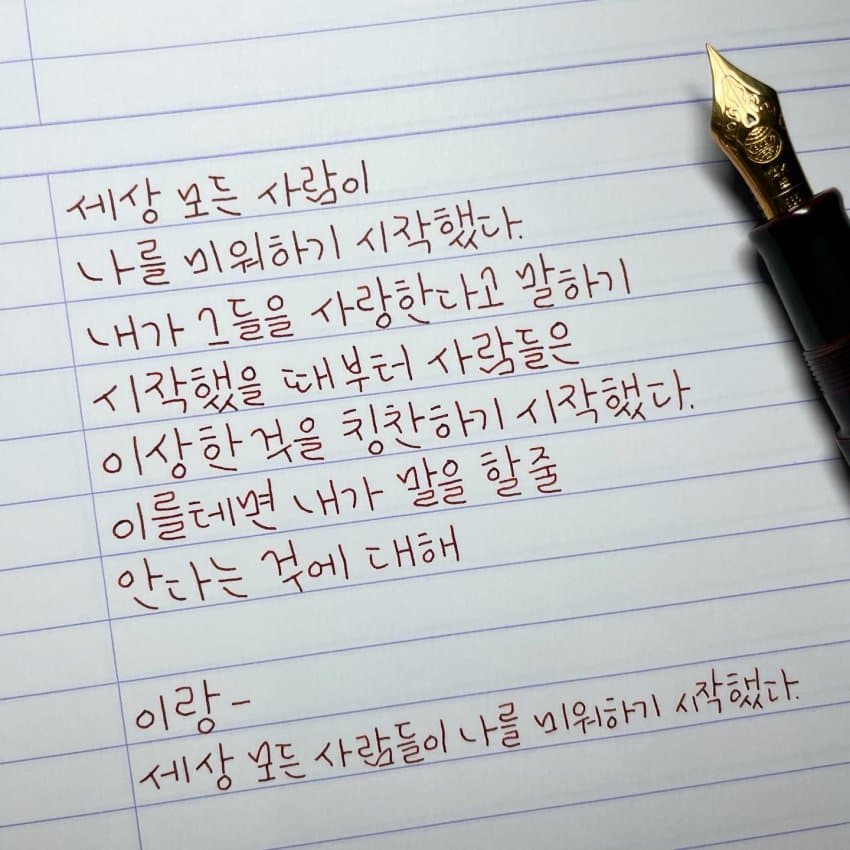 세상 모든 사람이
나를 미워하기 시작했다.
내가 그들을 사랑한다고 말하기
시작했을 때부터 사람들은
이상한 것을 칭찬하기 시작했다.
이를테면 내가 말을 할 줄
안다는 것에 대해
이랑-
세상 모든 사람들이 나를 미워하기 시작했다.